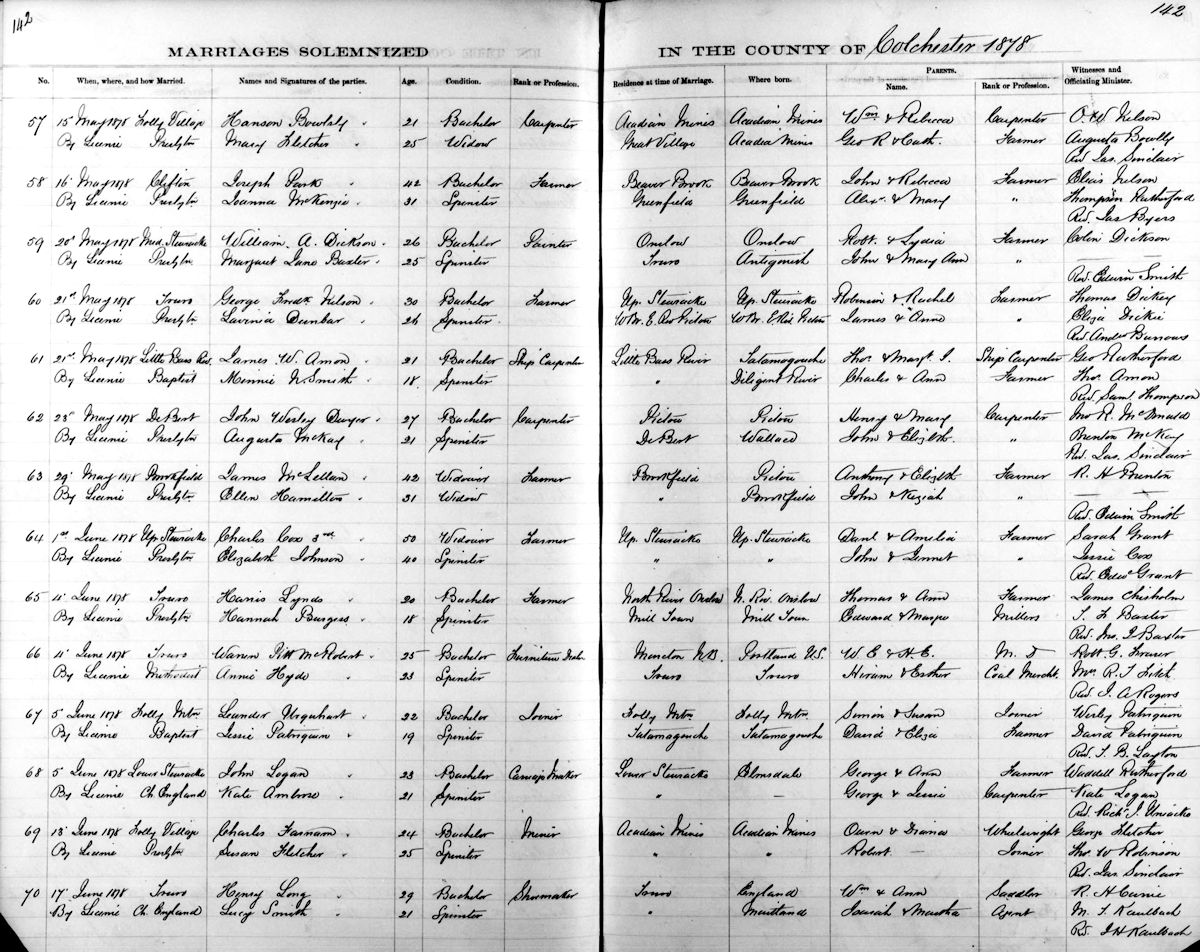 142
142
MARRIAGES SOLEMNIZED IN THE COUNTY OF Colchester 1878
No. When, where, and how Married. Names and Signatures of the parties. Age. Condition. Rank or Profession. Residence at time of Marriage. Where born. PARENTS. Name. Rank or Profession. Witnesses and Officiating Minister.
57 15 May 1878 Folly Village Hanson 21 Bachelor Carpenter Acadian Mines Acadian Mines Wm & Rebecca Carpenter O. W Nelson
By Licence Presbytn Mary Fletcher 25 Widow Great Village Acadia Mines Geo R & Cath. Farmer Augusta
Rev. Jas. Sinclair
58 16 May 1878 Clifton Joseph Park 42 Bachelor Farmer Beaver Brook Beaver Brook John & Rebecca Farmer Elias Nelson
By Licence Presbytn Joanna McKenzie 31 Spinster Greenfield Greenfield Alexr & Mary " Thompson Rutherford
Rev. Jas Byers
59 20 May 1878 Mid. Stewiacke William A. Dickson 26 Bachelor Painter Onslow Onslow Robt. & Lydia Farmer Colin Dickson
By Licence Presbytn Margaret Jane Baxter 25 Spinster Truro Antigonish John & Mary Ann " —
Rev. Edwin Smith
60 21st May 1878 Truro George Fredk Nelson 30 Bachelor Farmer Up. Stewiacke Up. Stewiacke Robinson & Rachel Farmer Thomas Dickey
By Licence Presbytn Lavinia Dunbar 26 Spinster W Br. E. Riv Pictou W Br. E Riv Pictou James & Anne " Eliza Dickie
Rev. Andw Burrows
61 21st May 1878 Little Bass Riv. James W. Amon 21 Bachelor Ship Carpenter Little Bass River Tatamagouche Thos. & Margt. J. Ship Carpenter Geo Rutherford
By Licence Baptist Minnie N. Smith 18 Spinster " Diligent River Charles & Ann Farmer Thos. Amon
Rev. Saml. Thompson
62 23 May 1878 DeBert John Wesley 27 Bachelor Carpenter Pictou Pictou Henry & Mary Carpenter Jno R. McDonald
By Licence Presbytn Augusta McKay 21 Spinster DeBert Wallace John & Elizbth. " Brenton McKay
Rev. Jas. Sinclair
63 29 May 1878 Brookfield James McLellan 42 Widower Farmer Brookfield Pictou Anthony & Elizbth Farmer R. H Brenton
By Licence Presbytn Ellen Hamilton 31 Widow " Brookfield John & Keziah " —
Rev. Edwin Smith
64 1st June 1878 Up. Stewiacke Charles Cox 3rd 50 Widower Farmer Up. Stewiacke Up. Stewiacke Danl & Amelia Farmer Sarah Grant
By Licence Presbytn Elizabeth Johnson 40 Spinster " " John & Jennet " Jessie Cox
Rev. Edwd Grant
65 4 June 1878 Truro Harris Lynds 20 Bachelor Farmer North River Onslow N. Riv. Onslow Thomas & Ann Farmer James Chisholm
By Licence Presbytn Hannah Burgess 18 Spinster Mill Town Mill Town Edward & Millers J. F Baxter
Rev. Jno. I Baxter
66 4 June 1878 Truro Warren Pitt McRobert 25 Bachelor Furniture Moncton N.B. Portland U.S. W E & H E. M. D Robt G. Fraser
By Licence Methodist Annie Hyde 23 Spinster Truro Truro Hiram & Esther Coal Mercht. Mrs R. T.
Rev. J. A Rogers
67 5 June 1878 Folly Mtn Leander Urquhart 22 Bachelor Joiner Folly Mtn. Folly Mtn Simon & Susan Joiner Wesley Patriquin
By Licence Baptist Jessie Patriquin 19 Spinster Tatamagouche Tatamagouche David & Eliza Farmer David Patriquin
Rev. T. B. Layton
68 5 June 1878 Lower Stewiacke John Logan 23 Bachelor Carriage Maker Lower Stewiacke Elmsdale George & Ann Farmer Waddell Rutherford
By Licence Ch. England Kate Ambrose 21 Spinster " — George & Jessie Carpenter Kate Logan
Rev. Richd J. Uniacke
69 13 June 1878 Folly Village Charles Farnam 24 Bachelor Miner Acadian Mines Acadian Mines Owen & Diana Wheelwright George Fletcher
By Licence Presbytn Susan Fletcher 25 Spinster " " Robert — Joiner Thos. W Robinson
Rev. Jas. Sinclair
70 17 June 1878 Truro Henry Long 29 Bachelor Shoemaker Truro England Wm & Ann Saddler R. H
By Licence Ch. England Lucy Smith 21 Spinster " Maitland Isaiah & Martha Agent M. F Kaulbach
Rev. J H Kaulbach